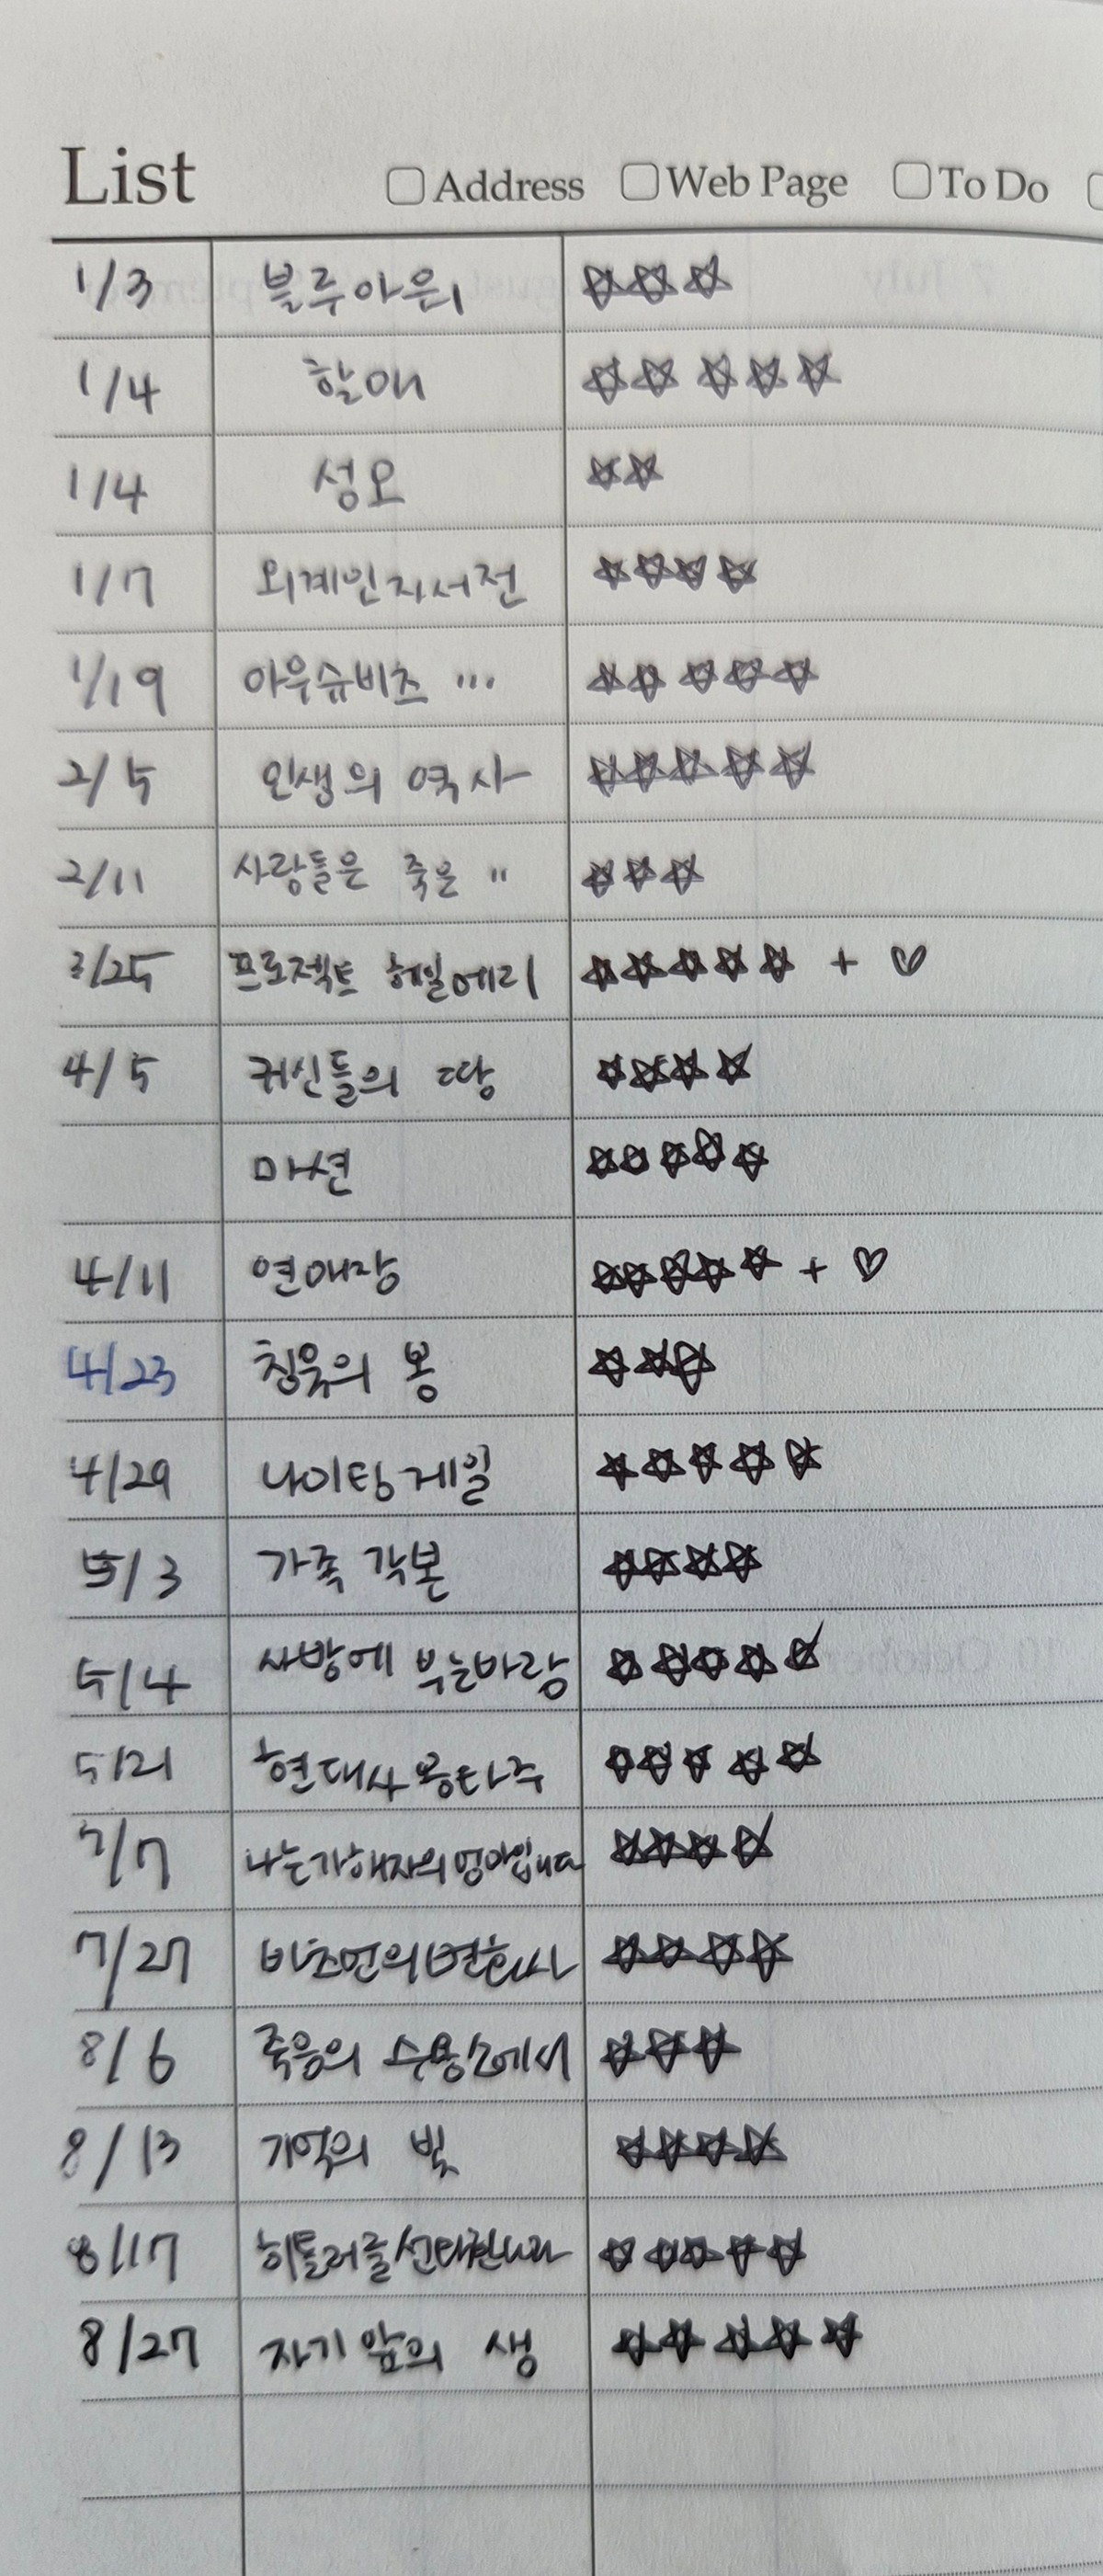 List □ Address □ Web Page □ To Do
1/3 블루아워 ☆☆☆
1/4 할매 ☆☆☆☆☆
1/4 성오 ☆☆
1/17 외계인자서전 ☆☆☆☆
1/19 아우슈비츠 ... ☆☆☆☆☆
2/5 인생의 역사 ☆☆☆☆☆
2/11 사랑들은 죽은 " ☆☆☆
3/25 프로젝트 헤일메리 ☆☆☆☆☆ + ♡
4/5 귀신들의 땅 ☆☆☆☆
마션 ☆☆☆☆☆
4/11 연매장 ☆☆☆☆☆ + ♡
4/23 침묵의 봄 ☆☆☆
4/29 나이팅게일 ☆☆☆☆☆
5/3 가족 각본 ☆☆☆☆
5/4 사방에 부는바람 ☆☆☆☆☆
5/21 현대사몽타주 ☆☆☆☆☆
7/7 나는가해자의엄마입니다 ☆☆☆☆
7/27 비스면의변호사 ☆☆☆☆
8/6 죽음의 수용소에서 ☆☆☆
8/13 기억의 빛 ☆☆☆☆
8/17 히틀러를선택한나라 ☆☆☆☆☆
8/27 자기앞의 생 ☆☆☆☆☆